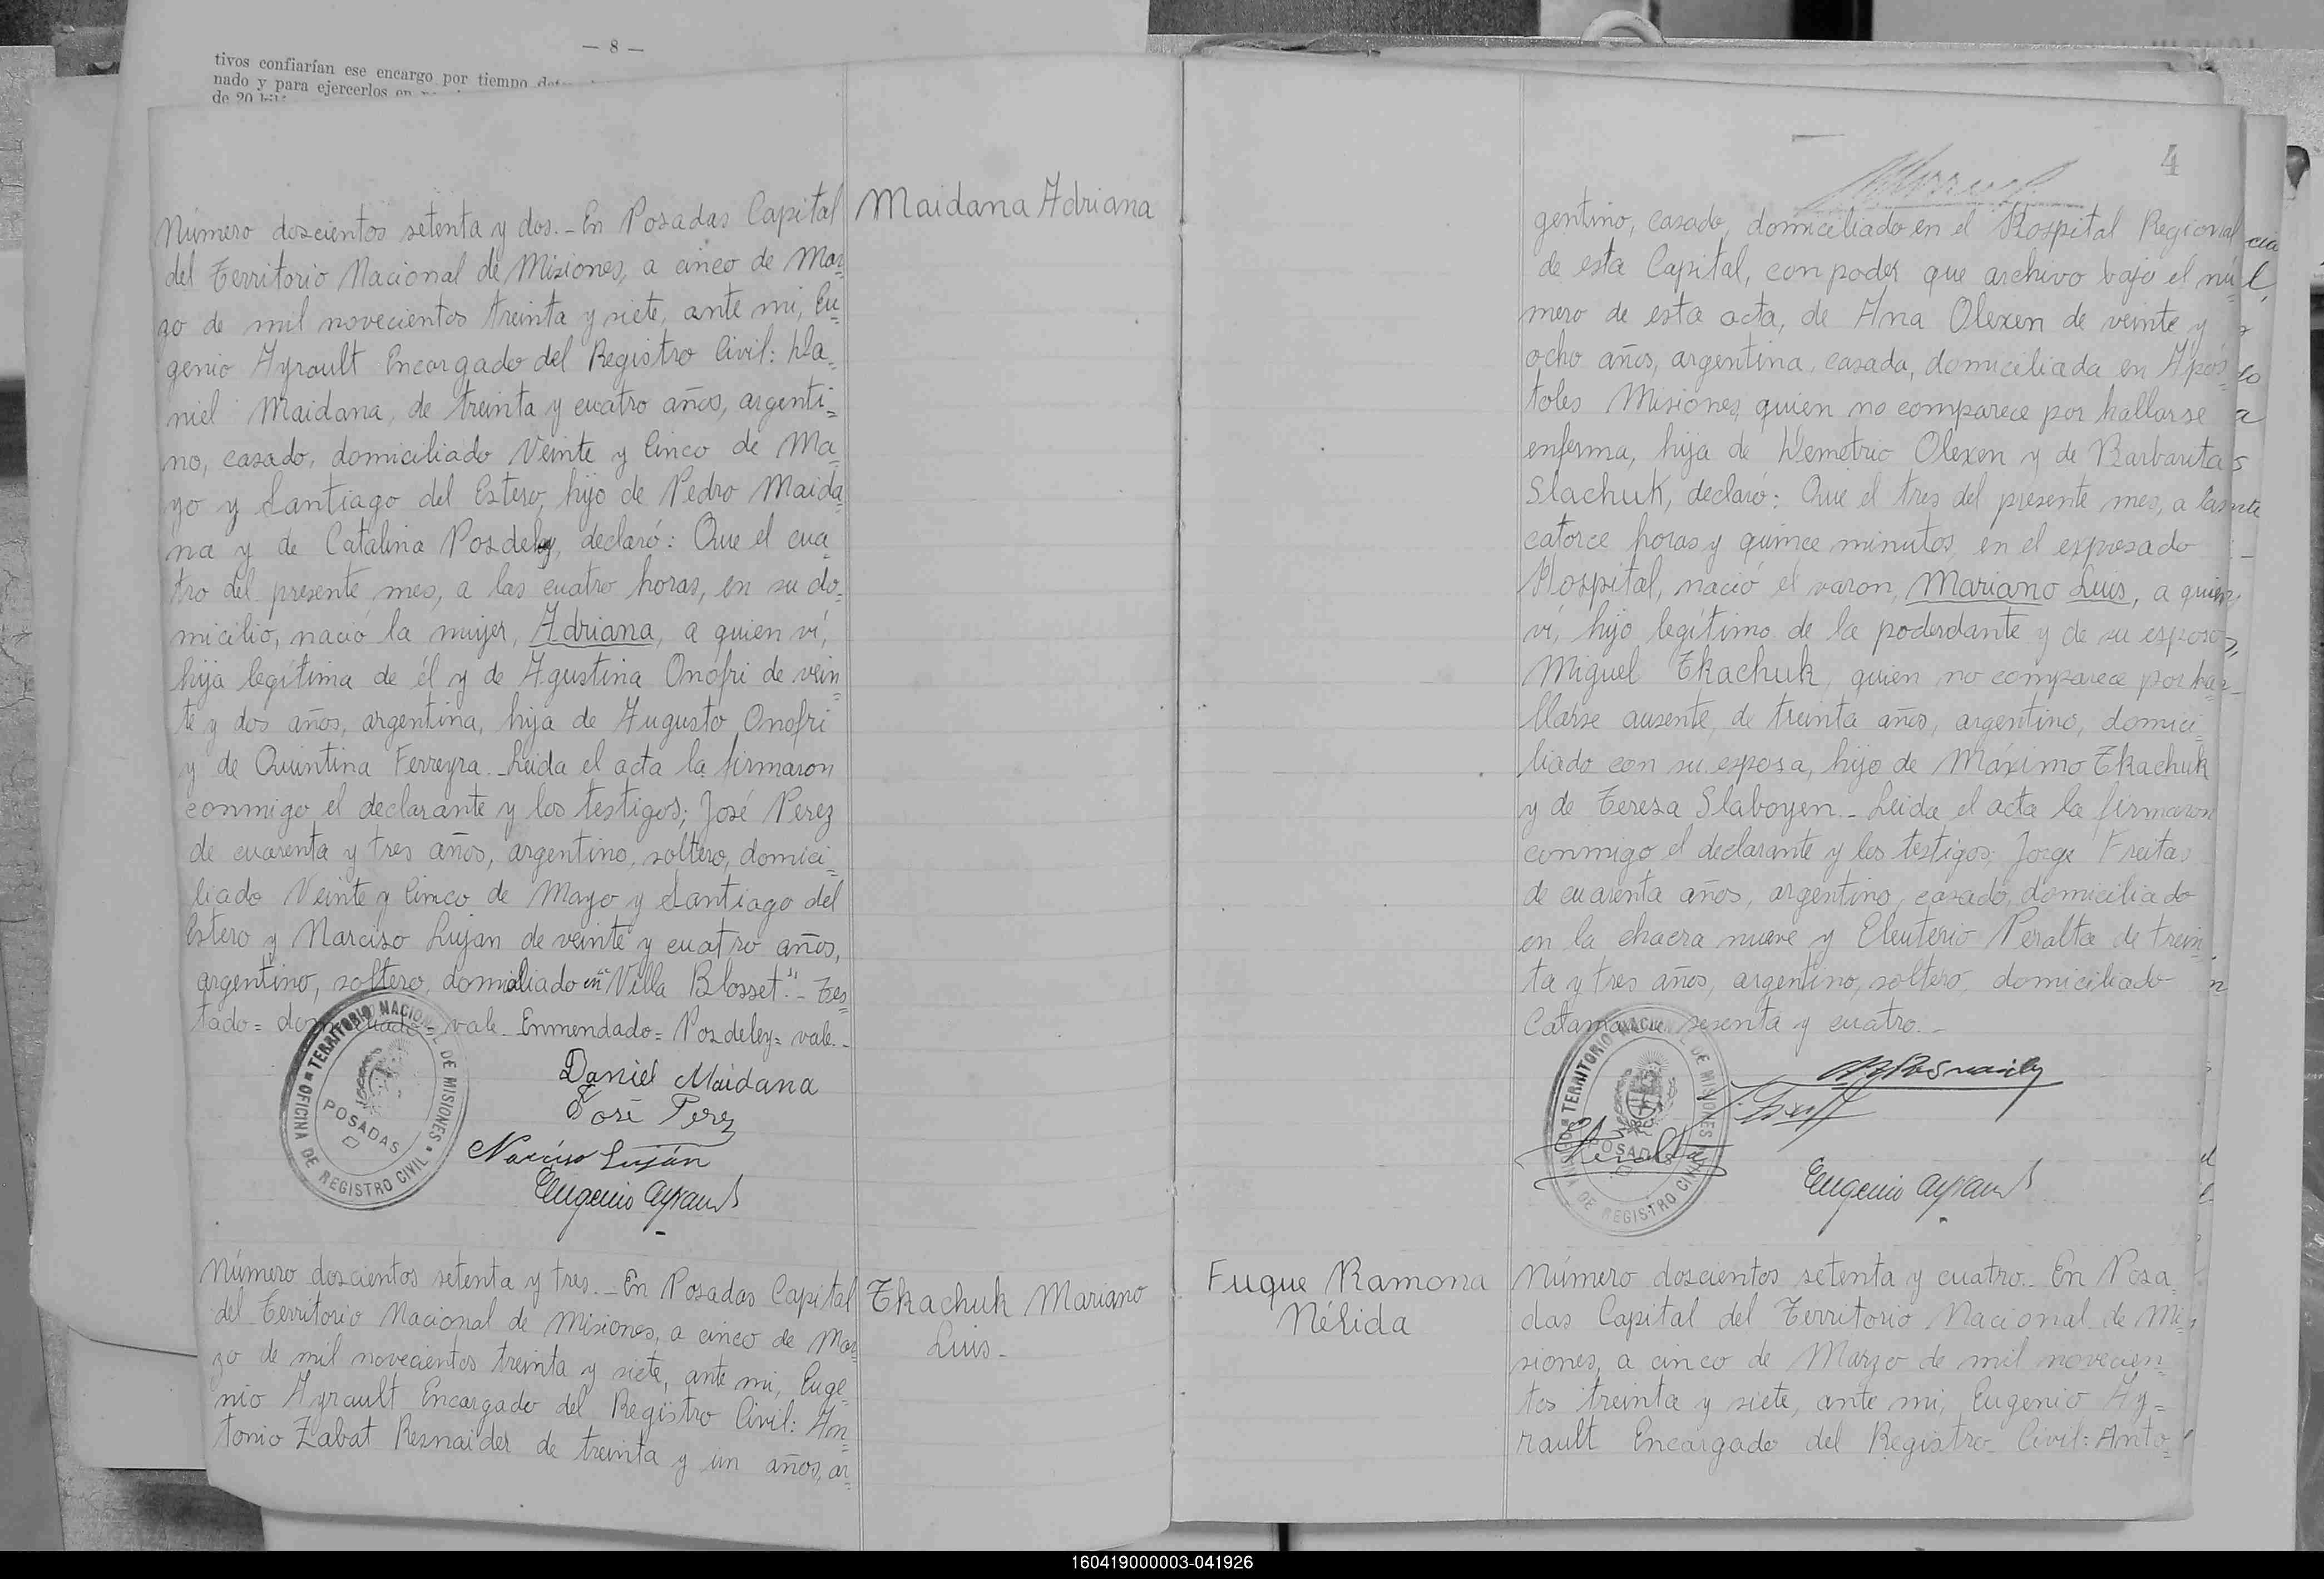 — 8 —
tivos confiarían ese encargo por tiempo
nado y para ejercerlos en
de 20
Maidana Adriana
Número doscientos setenta y dos.- En Posadas Capital
del Territorio Nacional de Misiones, a cinco de Mar=
zo de mil novecientos treinta y siete, ante mi, Eu=
genio Ayrault Encargado del Registro Civil: Da=
niel Maidana, de treinta y cuatro años, argenti=
no, casado, domiciliado Veinte y Cinco de Ma=
yo y Santiago del Estero, hijo de Pedro Maida=
na y de Catalina Posdeley, declaró: Que el cua=
tro del presente mes, a las cuatro horas, en su do=
micilio, nació la mujer, Adriana, a quien ví,
hija legítima de él y de Agustina Onofri de vein=
te y dos años, argentina, hija de Augusto Onofri
y de Quintina Ferreyra.- Leida el acta la firmaron
conmigo el declarante y los testigos; José Perez
de cuarenta y tres años, argentino, soltero, domici=
liado Veinte y Cinco de Mayo y Santiago del
Estero y Narciso Lujan de veinte y cuatro años,
argentino, soltero, domiciliado en "Villa Blosset".- Tes=
tado= = vale. Enmendado= Posdeley= vale.-
Daniel Maidana
José Perez
Narciso Luján
Eugenio Ayrault
OFICINA DE REGISTRO CIVIL TERRITORIO NACIONAL DE MISIONES
POSADAS
Tkachuk Mariano
Luis.
Número doscientos setenta y tres.- En Posadas Capital
del Territorio Nacional de Misiones, a cinco de Mar=
zo de mil novecientos treinta y siete, ante mi, Euge=
nio Ayrault Encargado del Registro Civil: An=
tonio Zabat Resnaider de treinta y un años, ar=
4
gentino, casado, domiciliado en el Hospital Regional
de esta Capital, con poder que archivo bajo el nú=
mero de esta acta, de Ana Olexen de veinte y
ocho años, argentina, casada, domiciliada en Após=
toles Misiones, quien no comparece por hallarse
enferma, hija de Demetrio Olexen y de Barbarita
Slachuk, declaró: Que el tres del presente mes, a las
catorce horas y quince minutos, en el expresado
Hospital, nació el varon, Mariano Luis, a quien
ví, hijo legítimo de la poderdante y de su esposo
Miguel Tkachuk, quien no comparece por ha=
llarse ausente, de treinta años, argentino, domici=
liado con su esposa, hijo de Máximo Tkachuk
y de Teresa Slaboyen.- Leida el acta la firmaron
conmigo el declarante y los testigos; Jorge Freitas
de cuarenta años, argentino, casado, domiciliado
en la chacra nueve y Eleuterio Peralta de trein=
ta y tres años, argentino, soltero, domiciliado
Catamarca sesenta y cuatro.-
E Peralta
Eugenio Ayrault
OFICINA DE REGISTRO CIVIL TERRITORIO NACIONAL DE MISIONES
POSADAS
Fuque Ramona
Nélida
Número doscientos setenta y cuatro.- En Posa=
das Capital del Territorio Nacional de Mi=
siones, a cinco de Marzo de mil novecien=
tos treinta y siete, ante mi, Eugenio Ay=
rault Encargado del Registro Civil: Anto=
160419000003-041926